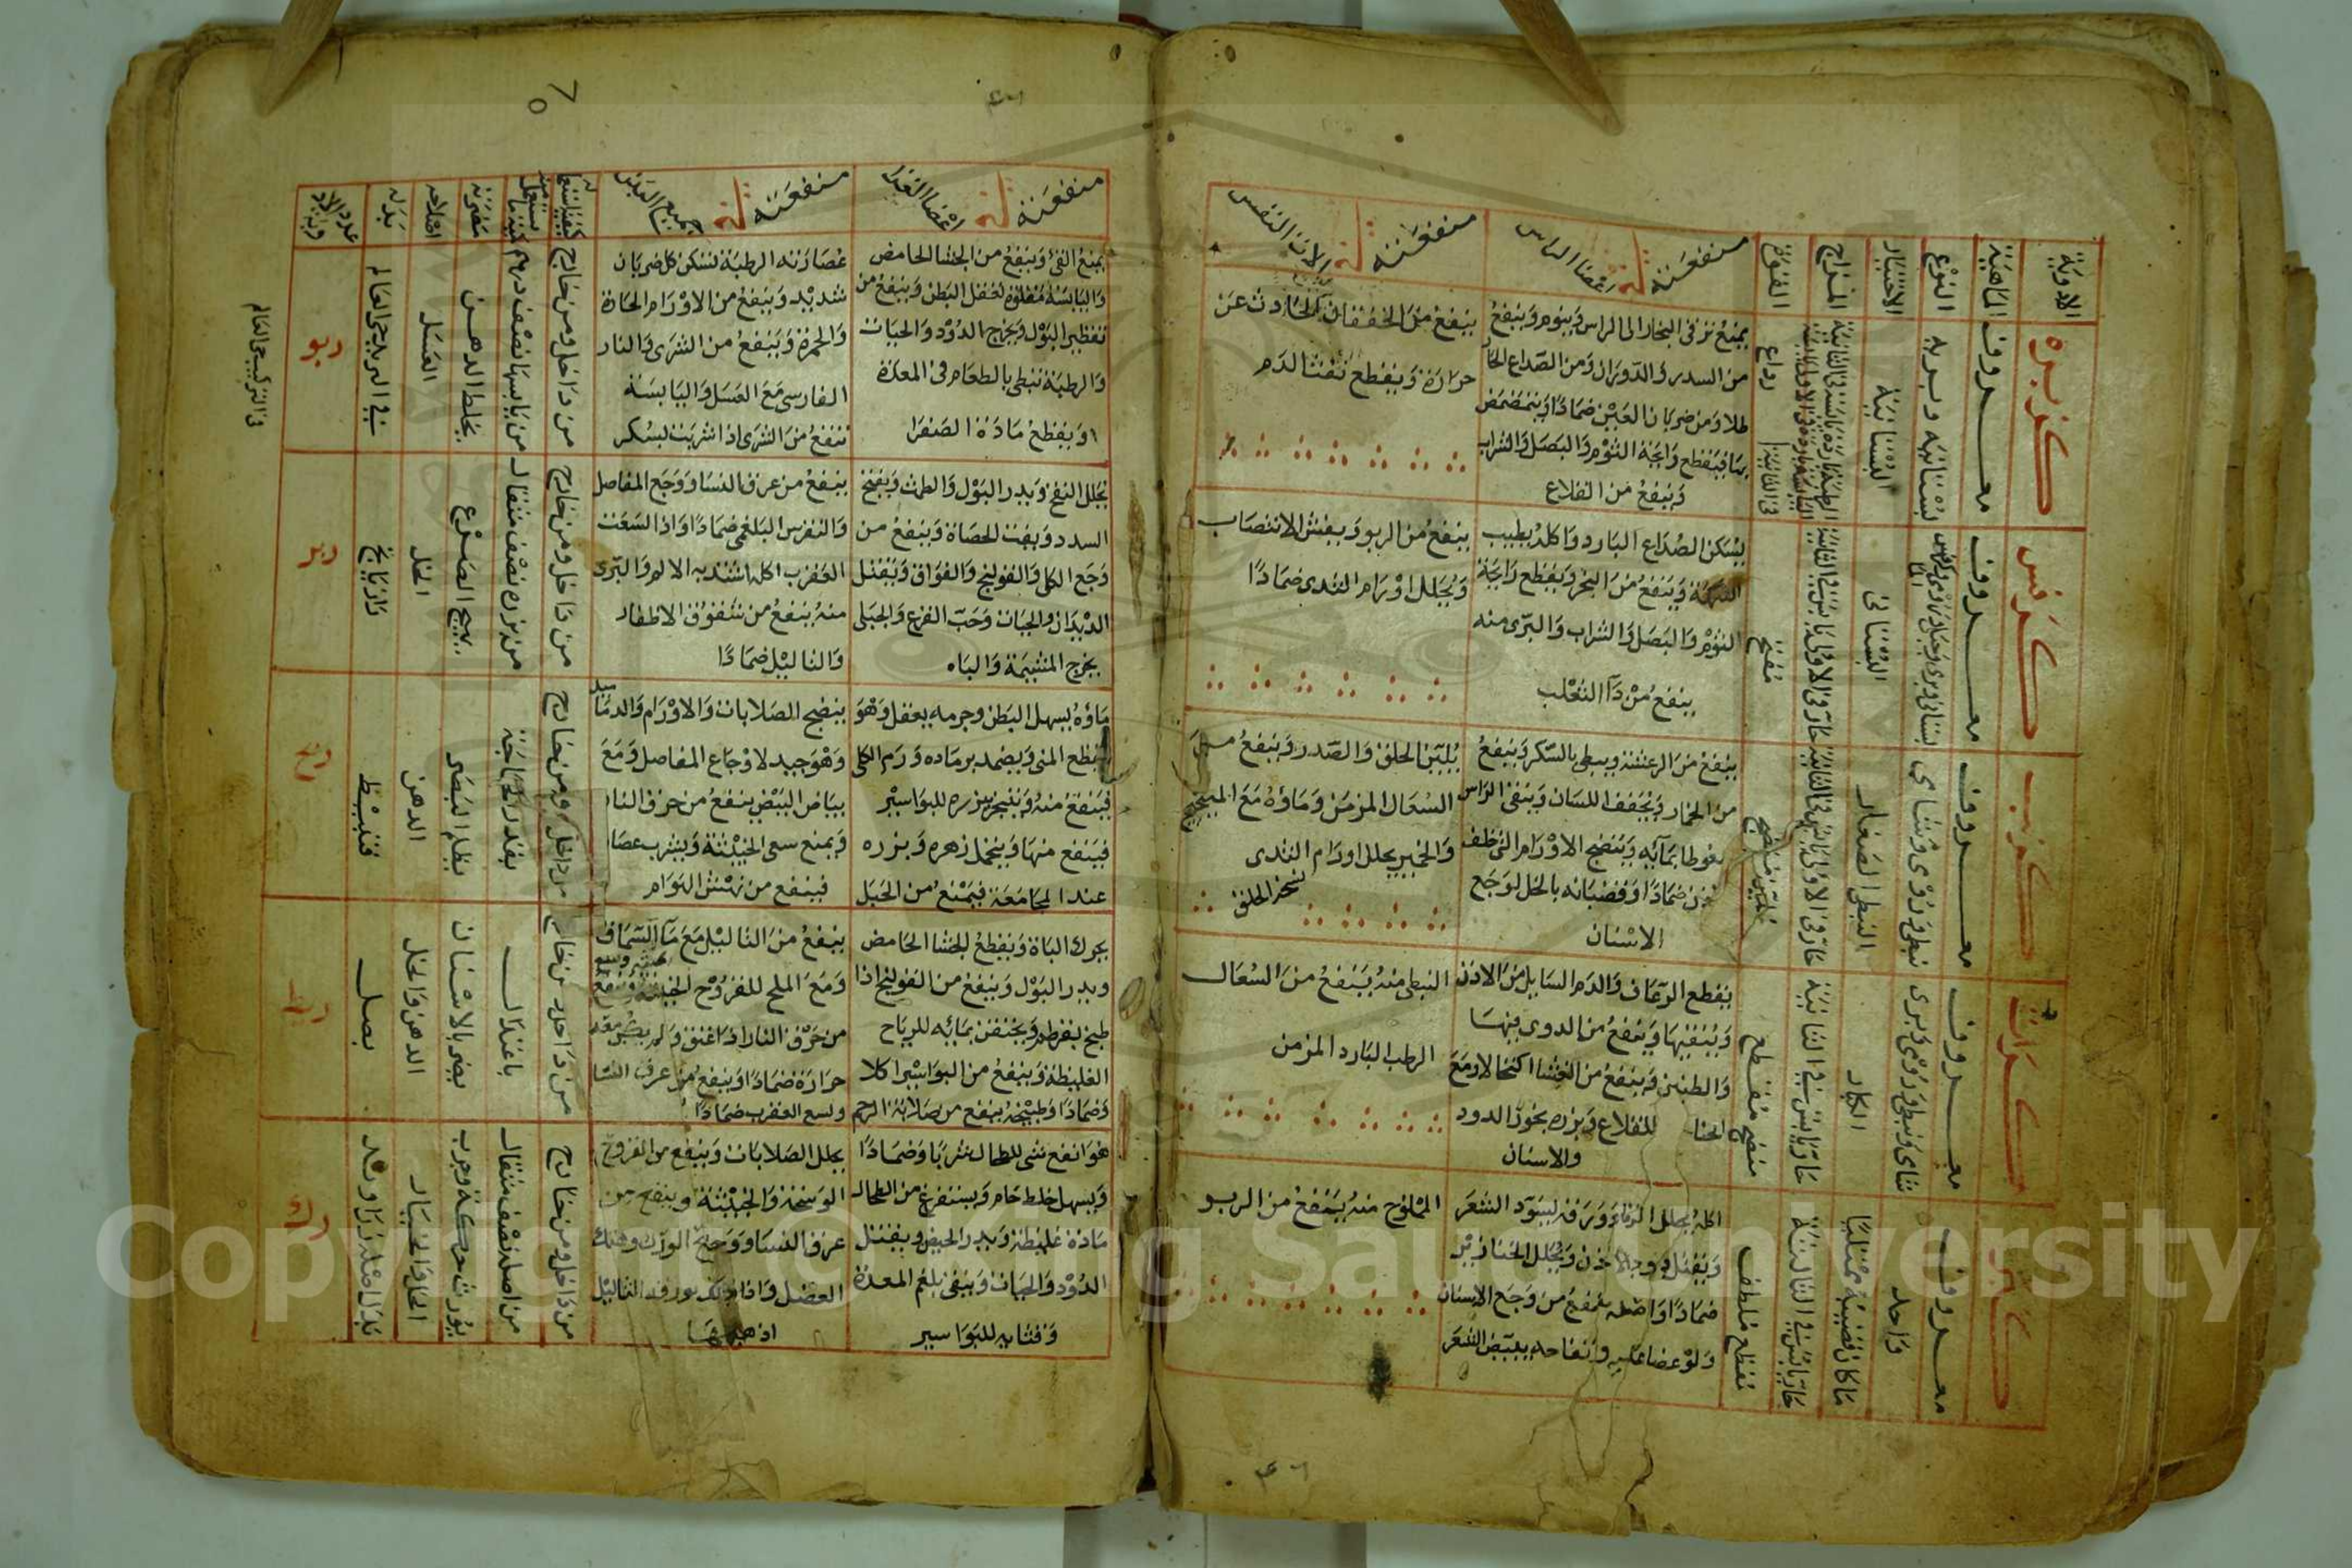 الادوية
الماهية
النوع
الاختيار
المزاج
القوة
منفعته في اعضا الراس
منفعته في الات النفس
كزبره
معروف
بستانيه وبريه
البستانية
رداع
يمنع ترقى البخار الى الراس وينوم وينفع
من السدر والدوران ومن الصداع الحار
طلا ومن ضربان العين ضمادا ويتمضمض
بها فيقطع رايحة الثوم والبصل والشراب
وينفع من القلاع
ينفع من الخفقان الحادث عن
حرارة ويقطع نفث الدم
كرفس
معروف
البستانى
حار فى الاولى يابس فى الثانية
مفتح
يسكن الصداع البارد واكله يطيب
النكهة وينفع من البخر ويقطع رايحة
الثوم والبصل والشراب والبرى منه
ينفع من دآ الثعلب
ينفع من الربو ويفش الانتصاب
ويحلل اورام الثدى ضمادا
كرنب
معروف
نبطى ورومى وشامى
النبطى الصغار
حار فى الاولى يابس فى الثانية
ملين منضج
ينفع من الرعشة ويبطى بالسكر وينفع
من الخمار ويجفف اللسان وينقى الراس
سعوطا بمآيه وينضج الاورام التى خلف
الاذن ضمادا وقضبانه بالخل لوجع
الاسنان
يلين الحلق والصدر وينفع من
السعال المزمن وماؤه مع الميبختج
والخمير يحلل اورام الثدى
كراث
معروف
شامى ونبطى ورومى وبرى
الكبار
حار يابس فى الثانية
منضج مقطع
يقطع الرعاف والدم السايل من الاذن
وينقيها وينفع من الدوى فيها
والطنين وينفع من العشا اكتحالا ومع
الحنا للقلاع وبزره بخور الدود
والاسنان
النبطى منه ينفع من السعال
الرطب البارد المزمن
كبر
معروف
واحد
ما كان قضيبه ممتليا
حار يابس فى الثالثة
مقطع ملطف
ويقتل دود الاذن ويحلل الخنازير
ضمادا واصله ينفع من وجع الاسنان
ولو عضا عليه
المملوح منه ينفع من الربو
٧٥
منفعته في اعضا الغذا
منفعته في جميع البدن
كيفية استعماله
كمية ما يستعمل منه
مضرته
اصلاحه
بدله
عدد الادوية
يمنع القى وينفع من الجشا الحامض
واليابسة مقلوة لعقل البطن وينفع من
تقطير البول ويخرج الدود والحيات
والرطبة تبطى بالطعام فى المعدة
ويقطع مادة الصفرا
عصارته الرطبة تسكن كل ضربان
شديد وينفع من الاورام الحارة
والحمرة وينفع من الشرى والنار
الفارسى مع العسل واليابسة
تنفع من الشرى اذا شربت بسكر
من داخل ومن خارج
من يابسها نصف درهم
يخلط الدهن
العسل
ريو
يحلل النفخ ويدر البول والطمث ويفتح
السدد ويفتت الحصاة وينفع من
وجع الكلى والقولنج والفواق ويقتل
الديدان والحيات وحب القرع والجبلى
يخرج المشيمة والباه
ينفع من عرق النسا ووجع المفاصل
والنقرس البلغمى ضمادا واذا لسعت
العقرب اكله اشتد به الالم والبرى
منه ينفع من شقوق الاظفار
والثاليل ضمادا
من داخل ومن خارج
من بزره نصف مثقال
يهيج الصرع
الخل
رازيانج
ريز
ماؤه يسهل البطن وجرمه يعقل وهو
يقطع المنى ويضمد برماده ورم الكلى
فينفع منه ويتبخر ببزره للبواسير
فينفع منها ويتحمل زهره وبزره
عند المجامعة فيمنع من الحبل
ينضج الصلابات والاورام والدماميل
وهو جيد لاوجاع المفاصل ومع
بياض البيض ينفع من حرق النار
ويمنع سعى الخبيثة ويشرب عصا
فينفع من نهش الهوام
من داخل ومن خارج
بقدر الحاجة
يظلم البصر
الدهن
قنبيط
ريح
يحرك الباة ويقطع الجشا الحامض
ويدر البول وينفع من القولنج اذا
طبخ بقرطم ويحتقن بمائه للرياح
الغليظة وينفع من البواسير اكلا
وضمادا وطبيخه ينفع من صلابة الرحم
ينفع من الثاليل مع مآ السماق
ومع الملح للقروح الخبيثة وينفع
حرارة ضمادا وينفع من عرق النسا
ولسع العقرب ضمادا
من داخل ومن خارج
باعتدال
يضر بالاسنان
الدهن والخل
بصل
ريط
هو انفع شى للطحال شربا وضمادا
ويسهل خلط خام ويستفرغ من الطحال
مادة غليظة ويدر الحيض ويقتل
الدود والحيات وينقى بلغم المعدة
وقثايه للبواسير
يحلل الصلابات وينفع من القروح
الوسخة والخبيثة وينفع من
عرق النسا ووجع الورك وهتك
العضل واذا دلك بورقه الثاليل
اذهبها
من داخل ومن خارج
من اصله نصف مثقال
يورث حكة وجرب
رك
Copyright © King Saud University